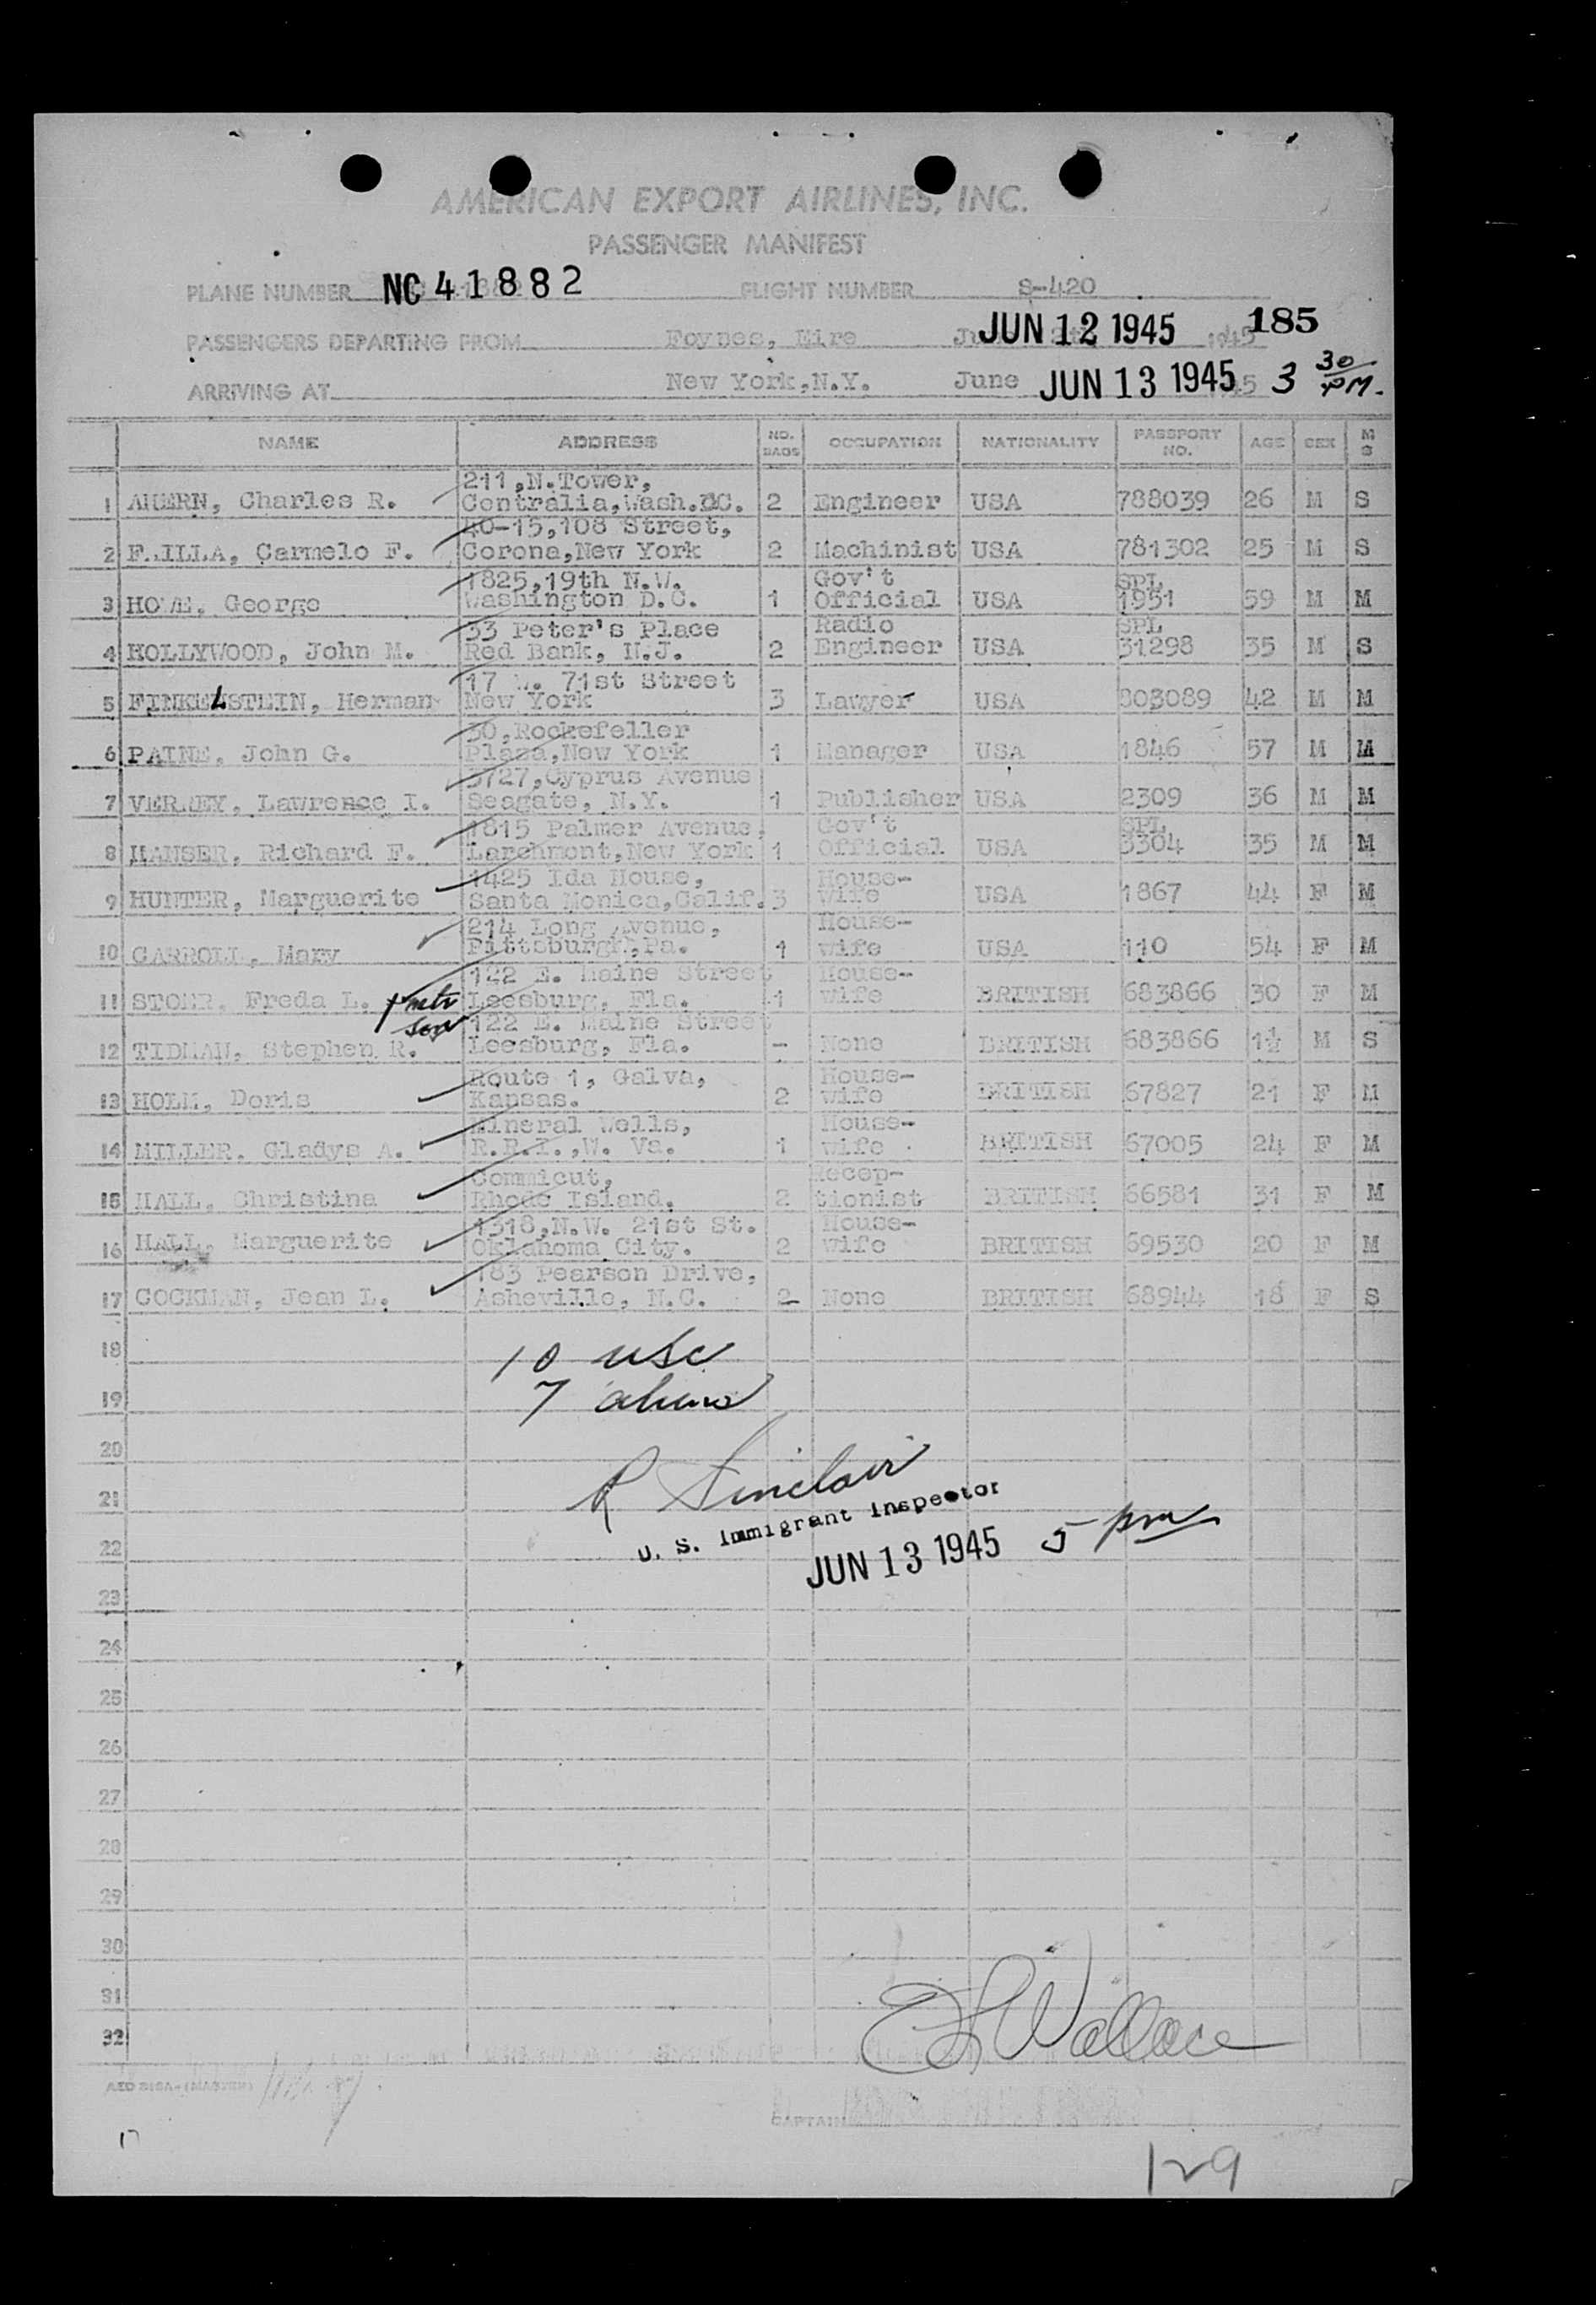 AMERICAN EXPORT AIRLINES, INC.
PASSENGER MANIFEST
PLANE NUMBER NC 41882 FLIGHT NUMBER S-420
185
PASSENGERS DEPARTING FROM Foynes, Eire JUN 12 1945 1945
ARRIVING AT New York,N.Y. June JUN 13 1945 3 30 PM.
NAME ADDRESS NO. BAGS OCCUPATION NATIONALITY PASSPORT NO. AGE SEX M S
1 AHERN, Charles R. 211,N.Tower, Centralia,Wash. 2 Engineer USA 788039 26 M S
2 Carmelo F. 40-15,108 Street, Corona,New York 2 Machinist USA 781302 25 M S
3 HOWE, George 1825,19th N.W. Washington D.C. 1 Gov't Official USA SPL 1951 59 M M
4 HOLLYWOOD, John M. 33 Peter's Place Red Bank, N.J. 2 Radio Engineer USA SPL 31298 35 M S
5 FINKELSTEIN, Herman 17 W. 71st Street New York 3 Lawyer USA 803089 42 M M
6 PAINE, John G. 30,Rockefeller Plaza,New York 1 Manager USA 1846 57 M M
7 Lawrence I. 3727,Cyprus Avenue Seagate, N.Y. 1 Publisher USA 2309 36 M M
8 HANSER, Richard F. 1815 Palmer Avenue, Larchmont,New York 1 Gov't Official USA SPL 3304 35 M M
9 HUNTER, Marguerite 1425 Ida House, Santa Monica,Calif. 3 House-wife USA 1867 44 F M
10 CARROLL, Mary 214 Long Avenue, Pittsburgh,Pa. 1 House-wife USA 110 54 F M
11 STOER, Freda L. 122 E. Maine Street Leesburg, Fla. 1 House-wife BRITISH 683866 30 F M
mtr
son
12 TIDMAN, Stephen R. 122 E. Maine Street Leesburg, Fla. - None BRITISH 683866 1½ M S
13 HOLM, Doris Route 1, Galva, Kansas. 2 House-wife BRITISH 67827 21 F M
14 MILLER, Gladys A. Mineral Wells, W. Va. 1 House-wife BRITISH 67005 24 F M
15 HALL, Christina Commicut, Rhode Island. 2 Recep-tionist BRITISH 66581 31 F M
16 HALL, Marguerite 1318,N.W. 21st St. Oklahoma City. 2 House-wife BRITISH 69530 20 F M
17 COCKMAN, Jean L. 183 Pearson Drive, Asheville, N.C. 2 None BRITISH 68944 18 F S
18
10 usc
19
7 aliens
20
R Sinclair
21
U. S. Immigrant Inspector
22
JUN 13 1945 5 pm
23
24
25
26
27
28
29
30
31
32
Wallace
CAPTAIN
17
129